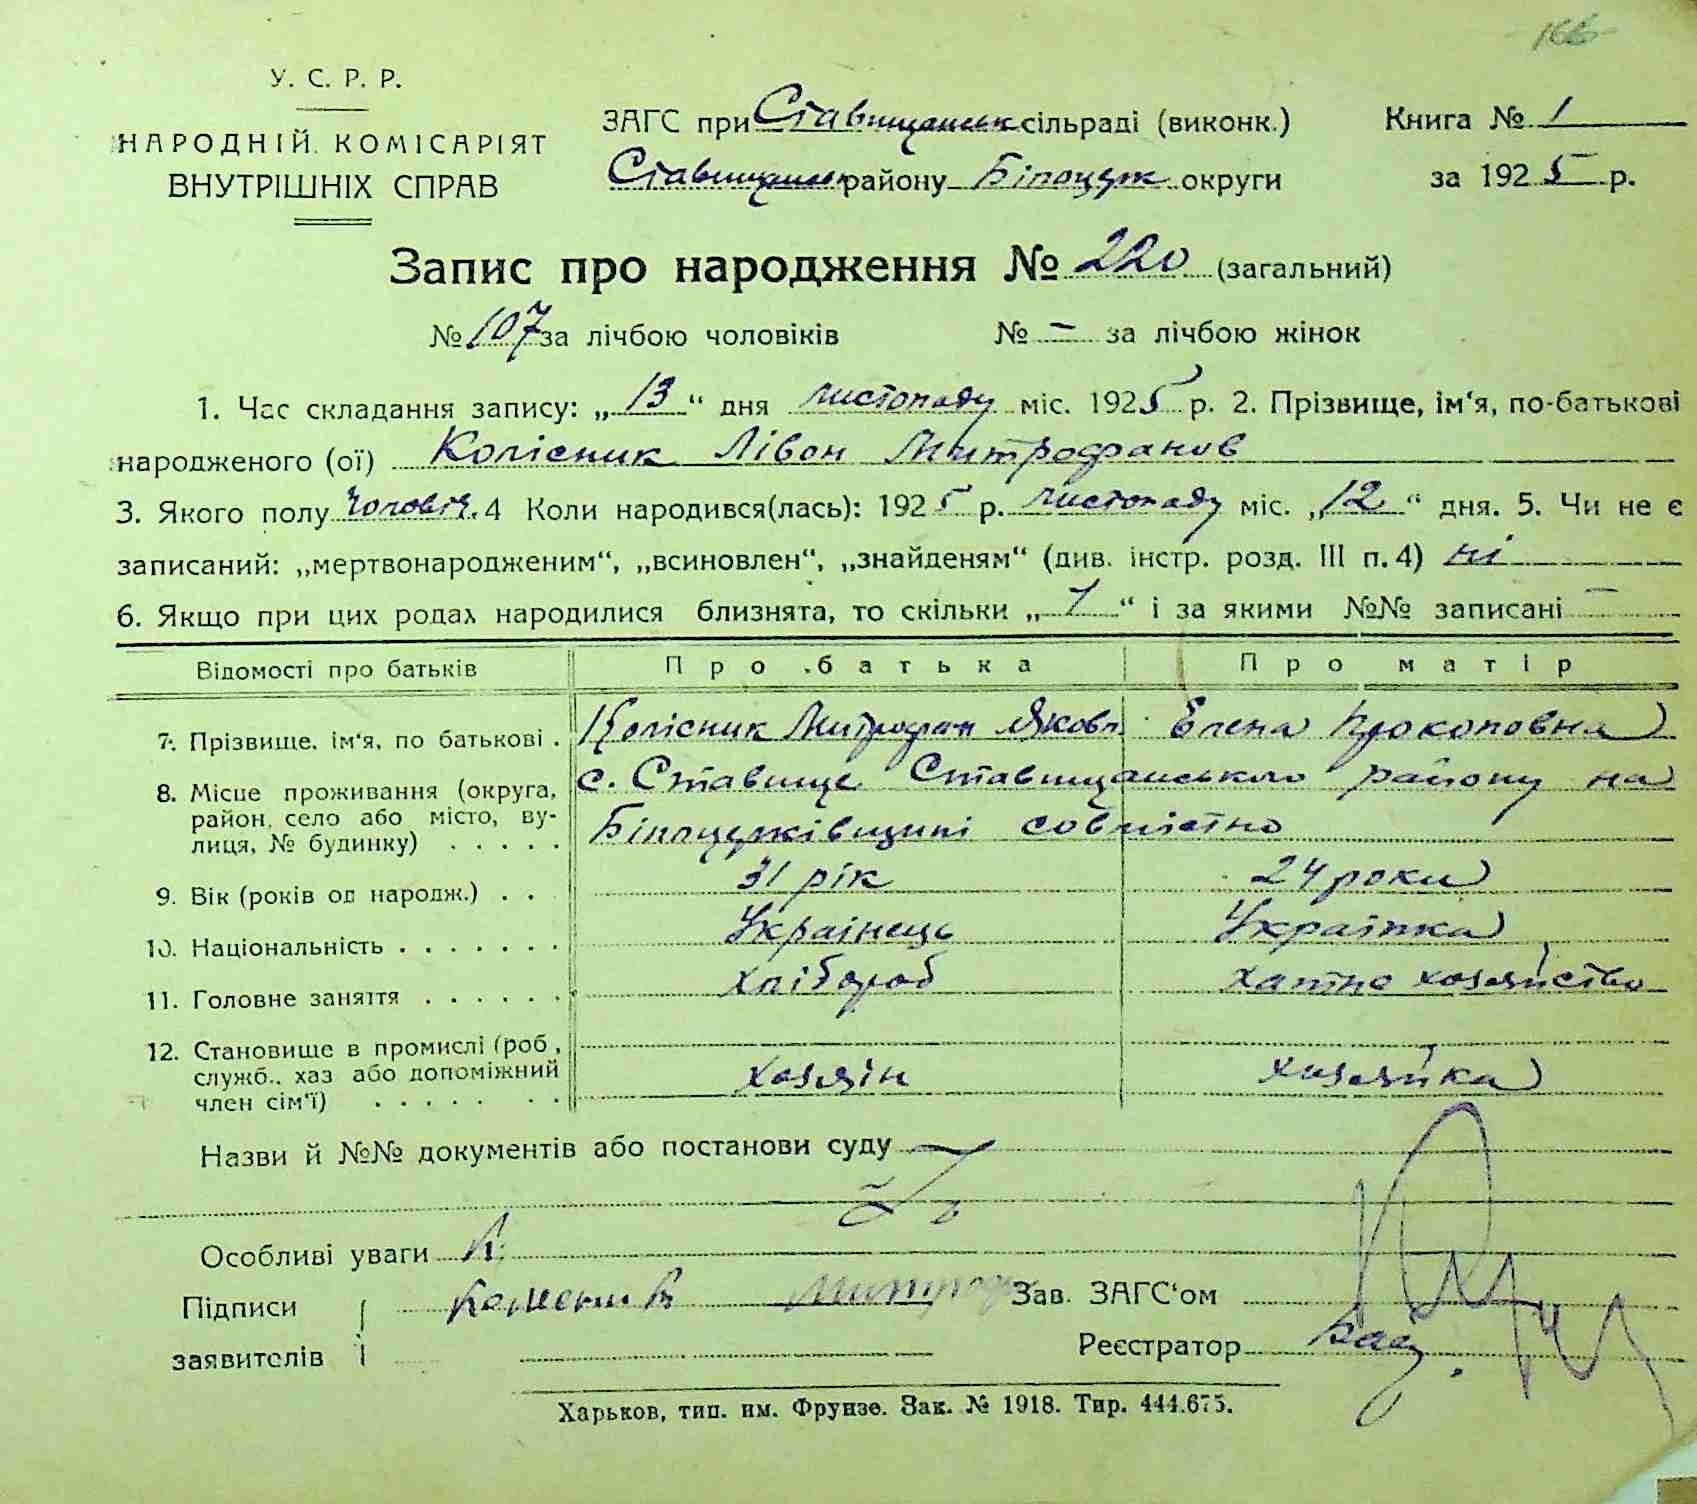 166
У. С. Р. Р.
НАРОДНІЙ КОМІСАРІЯТ
ВНУТРІШНІХ СПРАВ
ЗАГС при Ставищанськ сільраді (виконк.)
Ставищанськ району Білоцерк округи
Книга № 1
за 1925 р.
Запис про народження № 220 (загальний)
№ 107 за лічбою чоловіків № — за лічбою жінок
1. Час складання запису: „13“ дня листопаду міс. 1925 р. 2. Прізвище, ім‘я, по-батькові
народженого (ої) Колісник Лівон Митрофанов
3. Якого полу чоловіч. 4 Коли народився(лась): 1925 р. листопаду міс. „12“ дня. 5. Чи не є
записаний: „мертвонародженим“, „всиновлен“, „знайденям“ (див. інстр. розд. III п. 4) ні
6. Якщо при цих родах народилися близнята, то скільки „1“ і за якими №№ записані —
Відомості про батьків Про батька Про матір
7. Прізвище, ім‘я, по батькові . Колісник Митрофан Яковл Елена Прокоповна
8. Місце проживання (округа, с. Ставище Ставищанського району на
район, село або місто, ву-
лиця, № будинку) . . . . . Білоцерківщині совмістно
9. Вік (років од народж.) . . 31 рік 24 роки
10. Національність . . . . . . . Українець Українка
11. Головне заняття . . . . . . хлібороб хатнє хозяйство
12. Становище в промислі (роб.,
служб., хаз або допоміжний хозяїн хозяйка
член сім‘ї) . . . . . . .
Назви й №№ документів або постанови суду
Особливі уваги
Підписи Колесник Митроф Зав. ЗАГС‘ом
заявителів Реєстратор
Харьков, тип. им. Фрунзе. Зак. № 1918. Тир. 444.675.